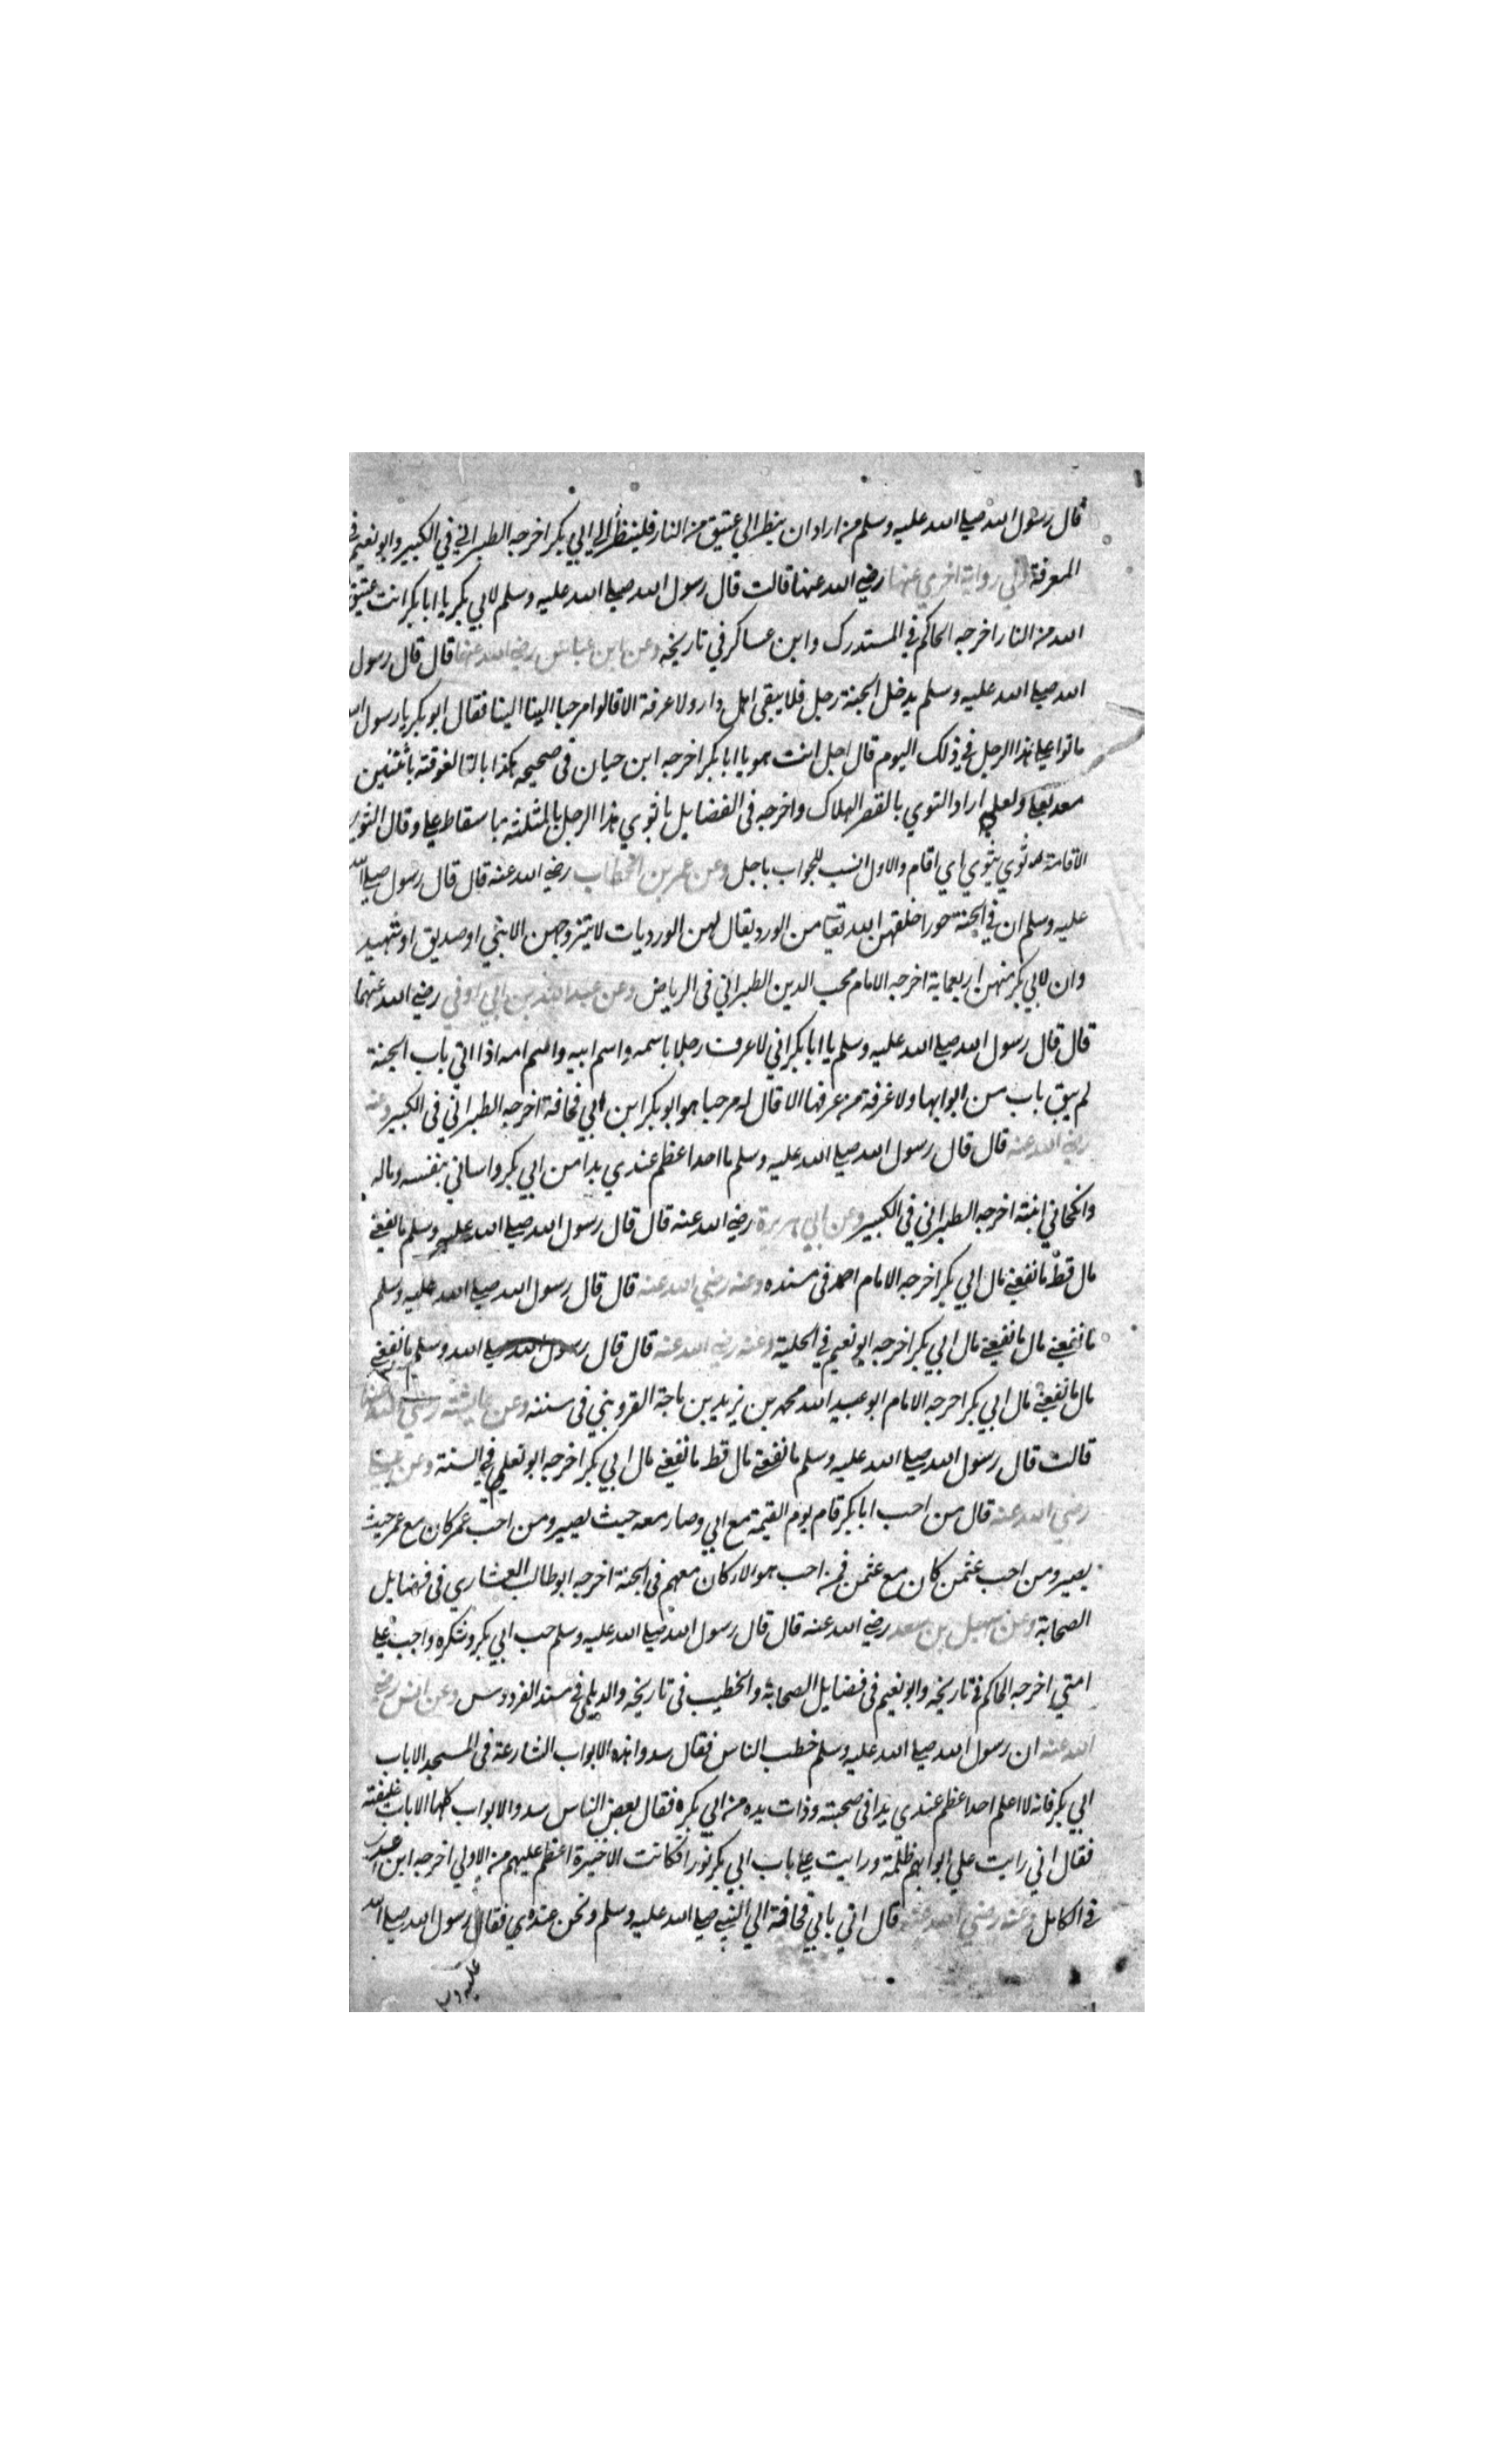 قال رسول الله صلي الله عليه وسلم من اراد ان ينظر الي عتيق من النار فلينظر الي ابي بكر اخرجه الطبراني في الكبير وابو نعيم في
المعرفة وفي رواية اخري عنها رضي الله عنها قالت قال رسول الله صلي الله عليه وسلم لابي بكر يا ابا بكر انت عتيق
الله من النار اخرجه الحاكم في المستدرك وابن عساكر في تاريخه وعن ابن عباس رضي الله عنهما قال قال رسول
الله صلي الله عليه وسلم يدخل الجنة رجل فلا يبقي اهل دار ولا غرفة الا قالوا مرحبا الينا الينا فقال ابو بكر يا رسول الله
ما توا علي هذا الرجل في ذلك اليوم قال اجل انت هو يا ابا بكر اخرجه ابن حبان في صحيحه هكذا بالتا الفوقية باثنتين
بعده علي ولعله اراد التوي بالقصر الهلاك واخرجه في الفضايل ما ثوي هذا الرجل بالمثلثة باسقاط علي وقال الثوي
الاقامة ثوي يثوي اي اقام والاول انسب للجواب باجل وعن عمر بن الخطاب رضي الله عنه قال قال رسول صلي الله
عليه وسلم ان في الجنة حورا خلقهن الله تعا من الورد يقال لهن الورديات لا يتزوجهن الا نبي او صديق او شهيد
وان لابي بكر منهن اربعماية اخرجه الامام محب الدين الطبراني في الرياض وعن عبد الله بن ابي اوفي رضي الله عنهما
قال قال رسول الله صلي الله عليه وسلم يا ابا بكر اني لاعرف رجلا باسمه واسم ابيه واسم امه اذا اتي باب الجنة
لم يبق باب من ابوابها ولا غرفة من غرفها الا قال له مرحبا هو ابو بكر ابن ابي قحافة اخرجه الطبراني في الكبير وعنه
رضي الله عنه قال قال رسول الله صلي الله عليه وسلم ما احد اعظم عندي يدا من ابي بكر واساني بنفسه وماله
وانكحاني ابنته اخرجه الطبراني في الكبير وعن ابي هريرة رضي الله عنه قال قال رسول الله صلي الله عليه وسلم ما نفعني
مال قط ما نفعني مال ابي بكر اخرجه الامام احمد في مسنده وعنه رضي الله عنه قال قال رسول الله صلي الله عليه وسلم
ما نفعني مال ما نفعني مال ابي بكر اخرجه ابو نعيم في الحلية وعنه رضي الله عنه قال قال رسول الله صلي الله وسلم ما نفعني
مال ما نفعني مال ابي بكر اخرجه الامام ابو عبد الله محمد بن يزيد بن ماجة القزويني في سننه وعن عايشة رضي الله عنها
قالت قال رسول الله صلي الله عليه وسلم ما نفعني مال قط ما نفعني مال ابي بكر اخرجه ابو يعلي في السنة وعن علي
رضي الله عنه قال من احب ابا بكر قام يوم القيمة مع ابي وصار معه حيث يصير ومن احب عمر كان مع عمر حيث
يصير ومن احب عثمن كان مع عثمن فمن احب هولاء كان معهم في الجنة اخرجه ابو طالب العشاري في فضايل
الصحابة وعن سهل بن سعد رضي الله عنه قال قال رسول الله صلي الله عليه وسلم حب ابي بكر وشكره واجب علي
امتي اخرجه الحاكم في تاريخه وابو نعيم في فضايل الصحابة والخطيب في تاريخه والديلمي في مسند الفردوس وعن انس رضي
الله عنه ان رسول الله صلي الله عليه وسلم خطب الناس فقال سدوا هذه الابواب الشارعة في المسجد الا باب
ابي بكر فانه لا اعلم احدا عظم عندي يدا في صحبته وذات يده من ابي بكر فقال بعض الناس سدوا الابواب كلها الا باب خليفته
فقال اني رايت علي ابوابهم ظلمة ورايت علي باب ابي بكر نورا فكانت الاخيرة اعظم عليهم من الاولي اخرجه ابن عدي
في الكامل وعنه رضي الله عنه قال اتي بابي قحافة الي النبي صلي الله عليه وسلم ونحن عنده فقال رسول الله صلي الله
عليه و